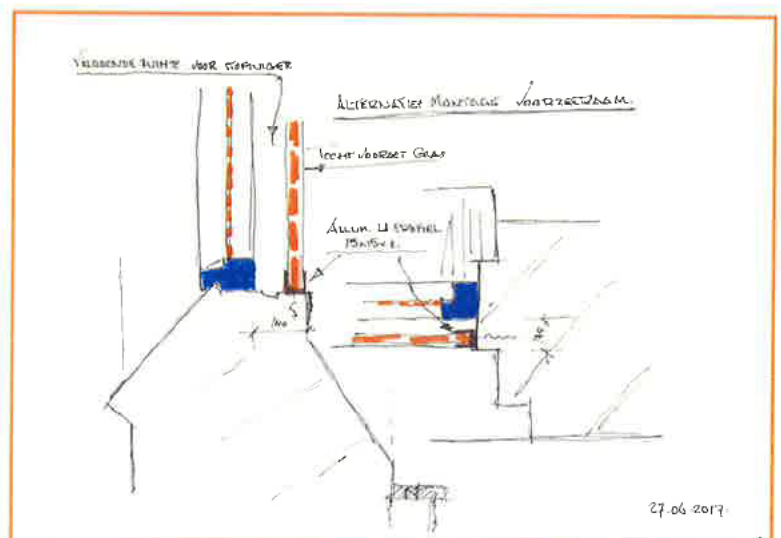 VOLDOENDE RUIMTE VOOR STOFZUIGER
ALTERNATIEF MONTAGE VOORZETRAAM.
VOORZET GLAS
ALUM. U PROFIEL
15x15x2.
27.06.2017.